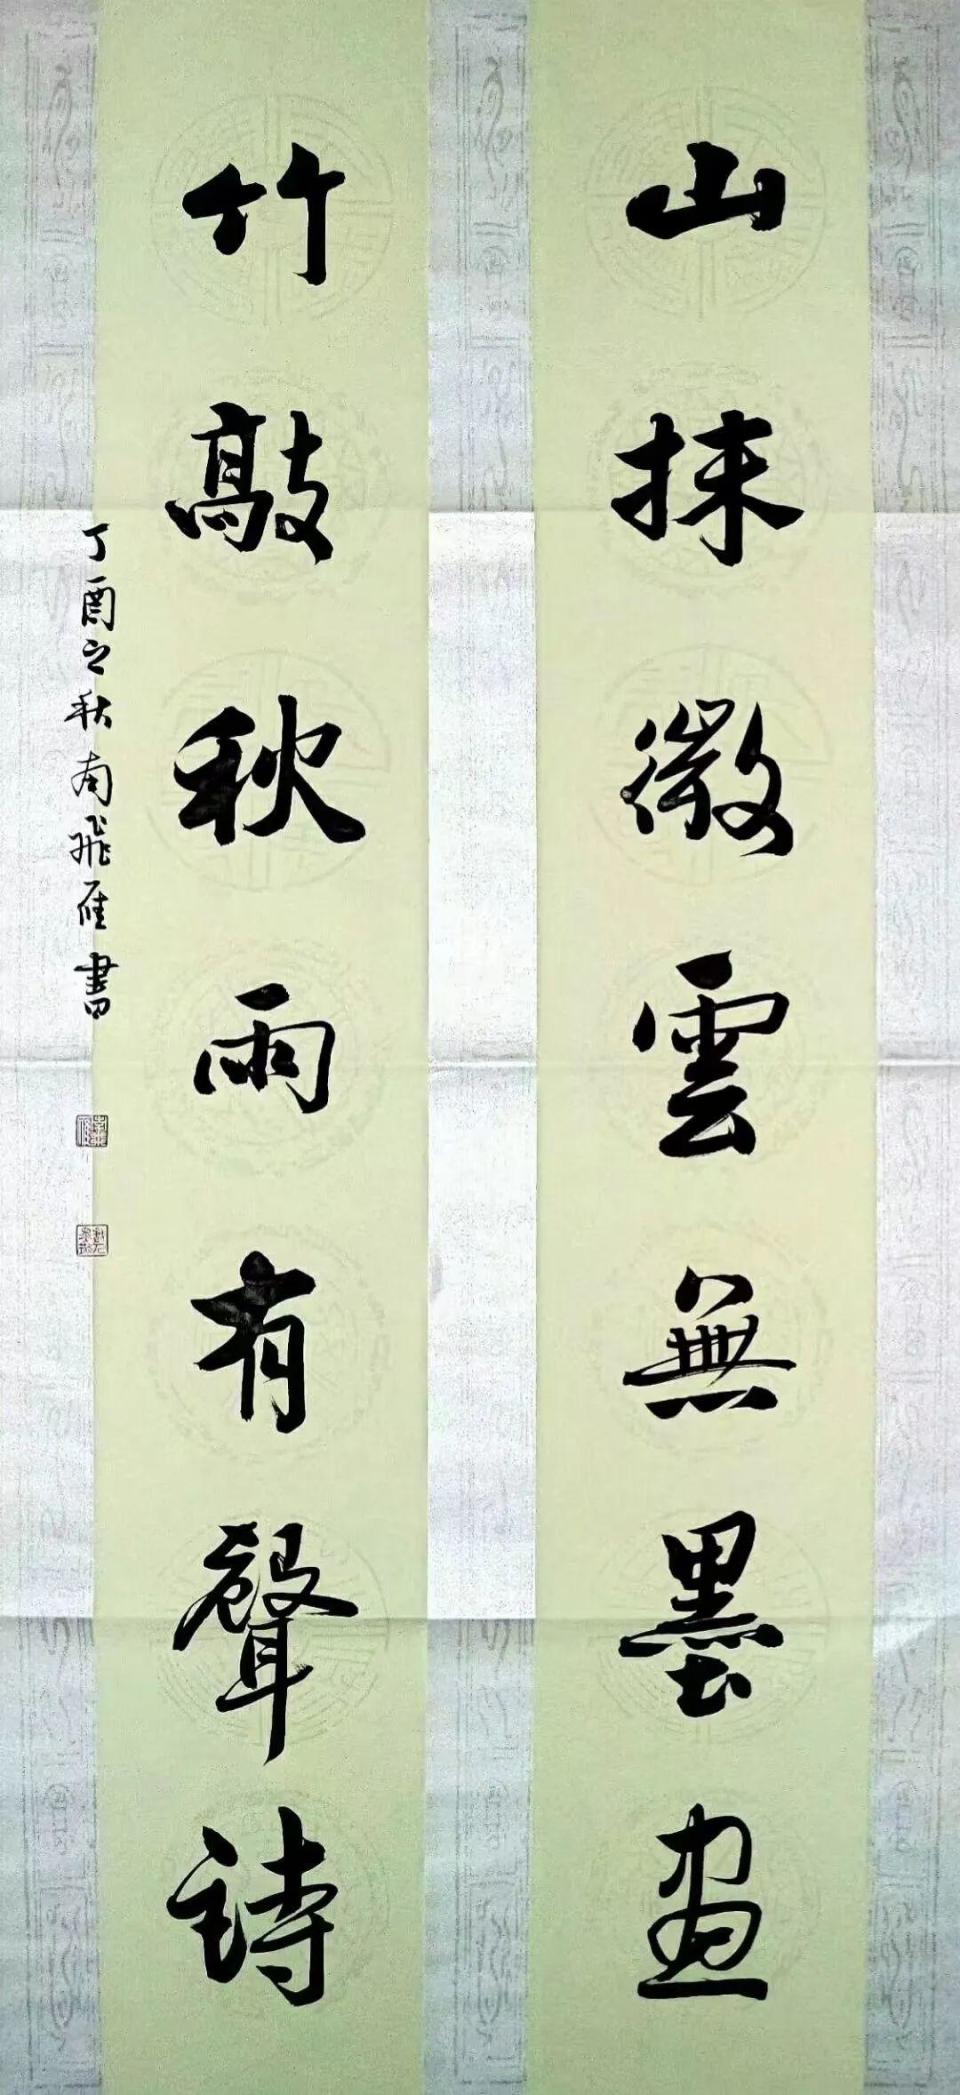 山抹微雲無墨畫
竹敲秋雨有聲詩
丁酉之秋南飛雁書